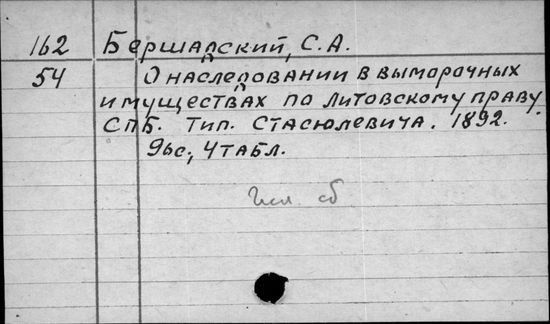 162 Бершадский, С.А.
54 О наследовании в выморочных
имуществах по литовскому праву.
СПБ. Тип. Стасюлевича. 1892.
96с., 4 табл.
сб